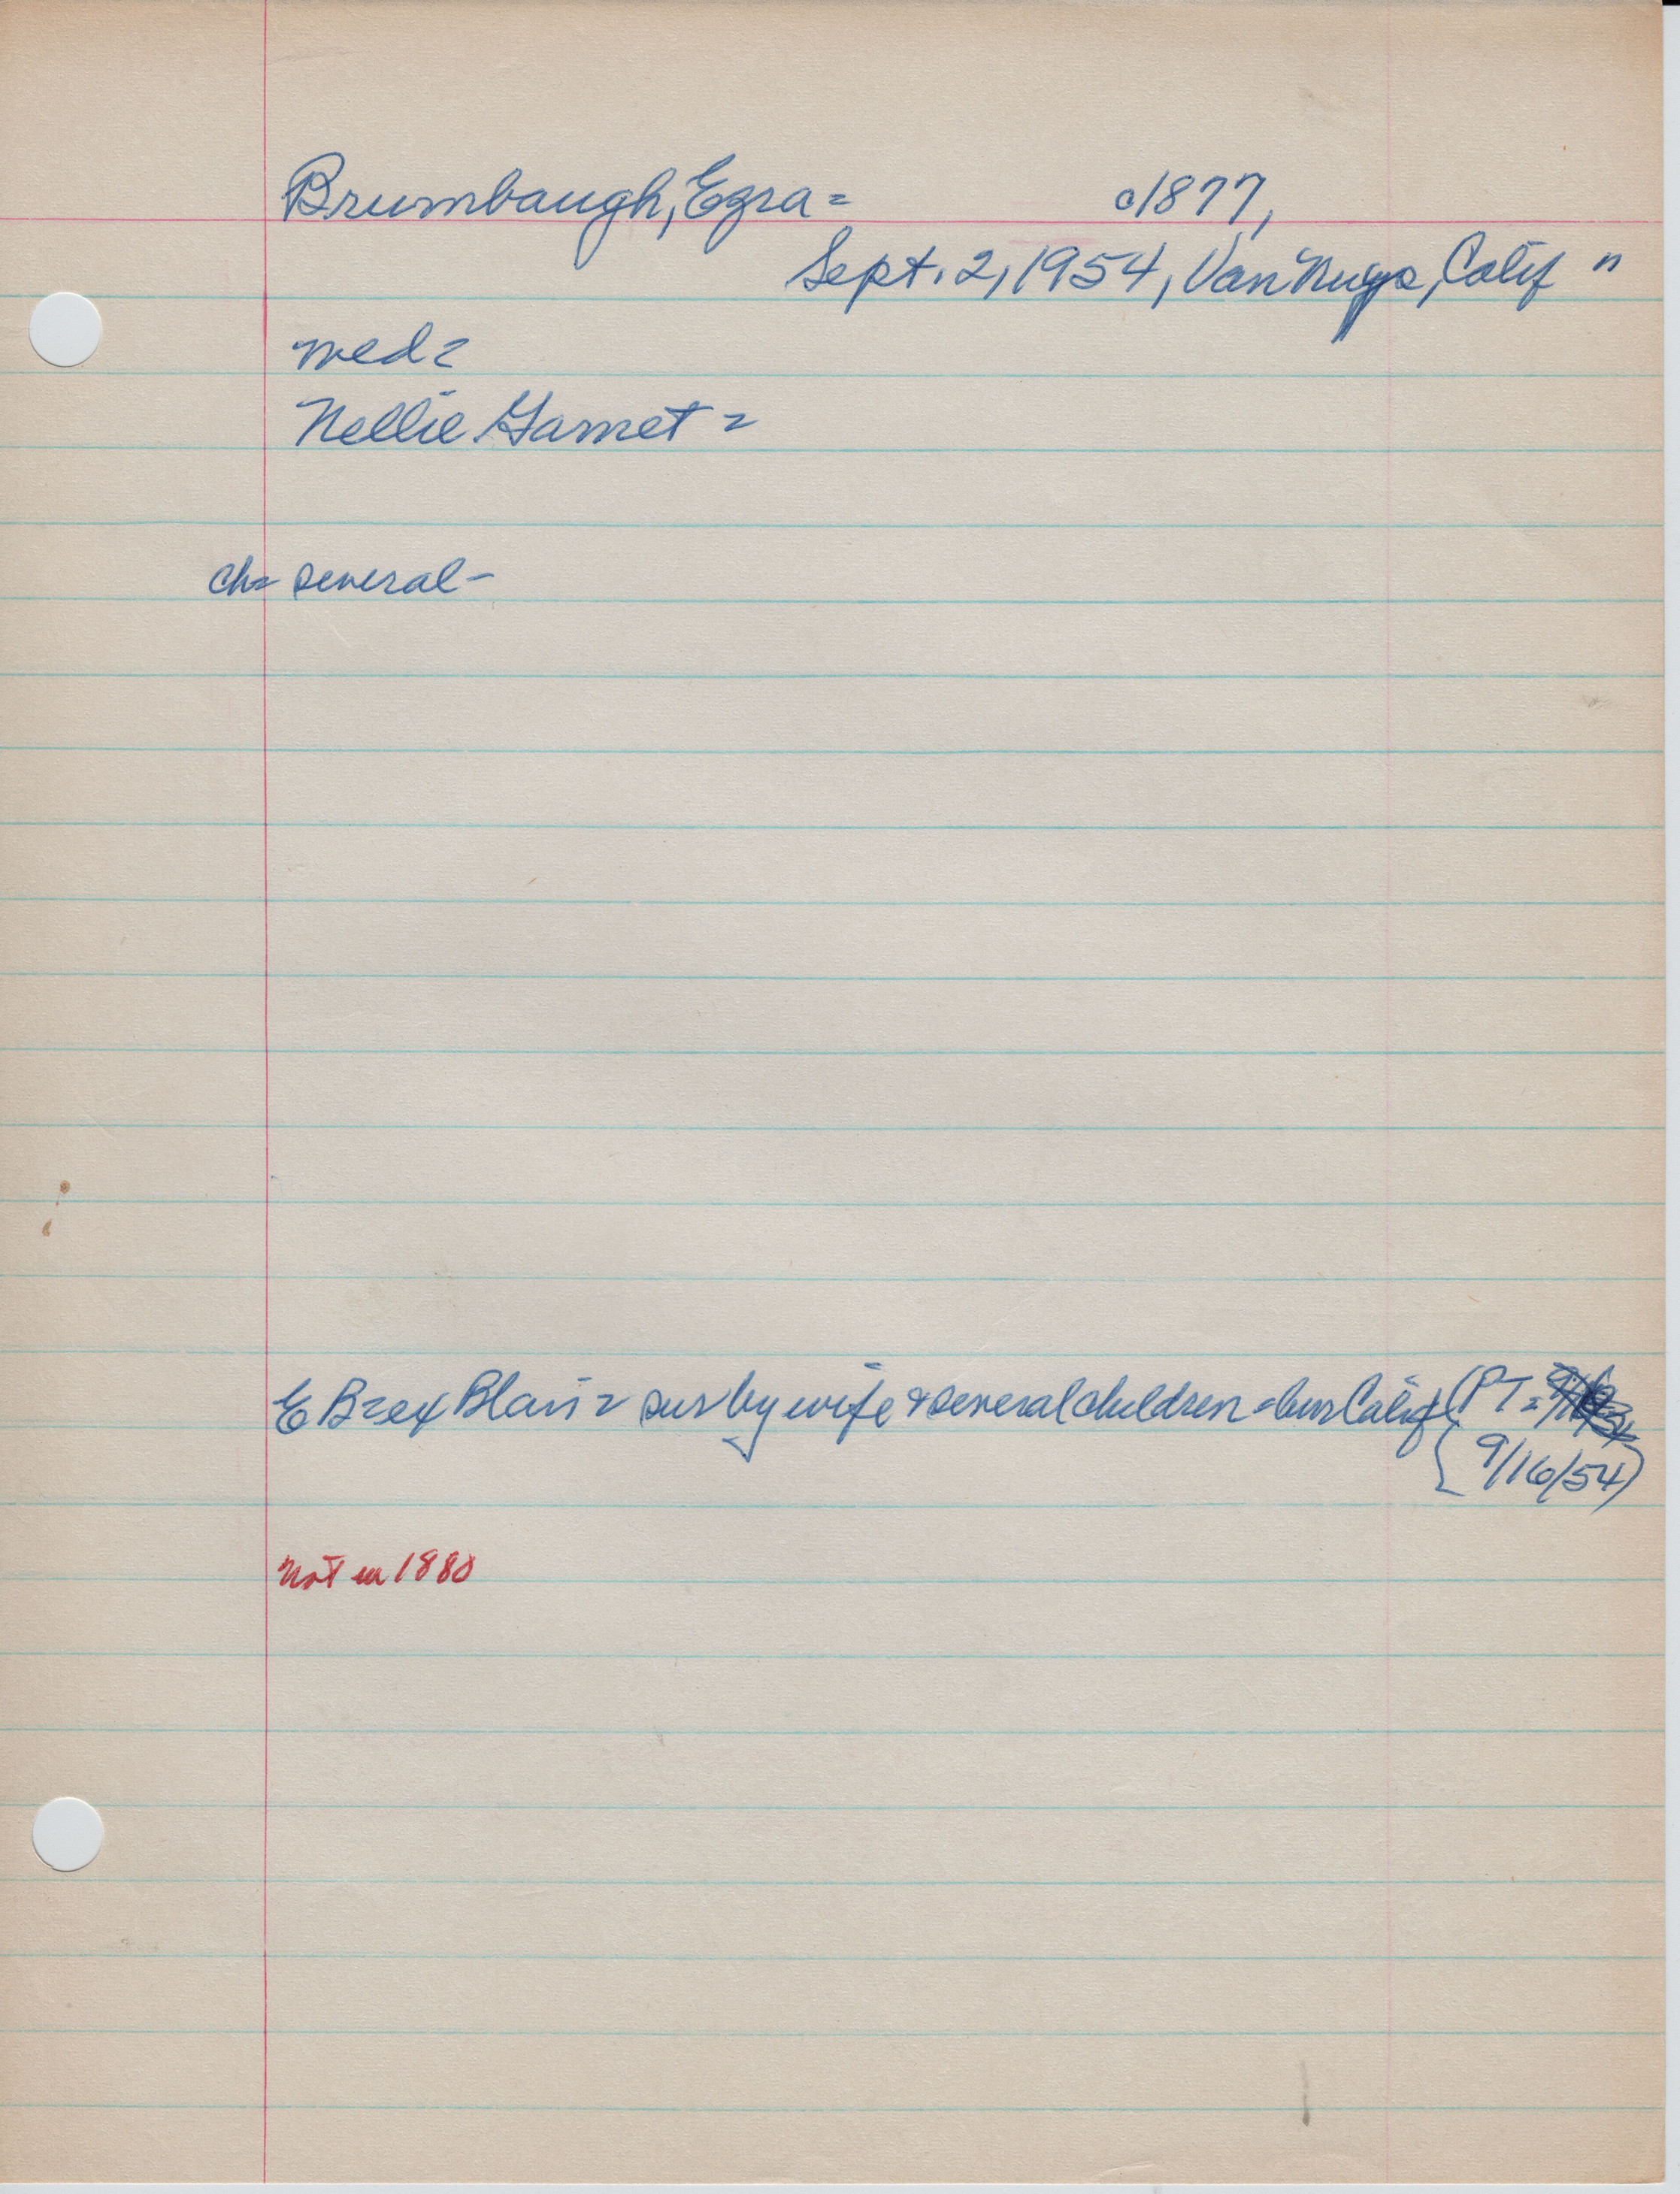 Brumbaugh, Ezra = c1877,
Sept. 2, 1954, Van Nuys, Calif "
med =
Nellie Garnet =
ch= several -
E B = ex Blair = sur by wife & several children = bur Calif (PT =
9/16/54)
not in 1880